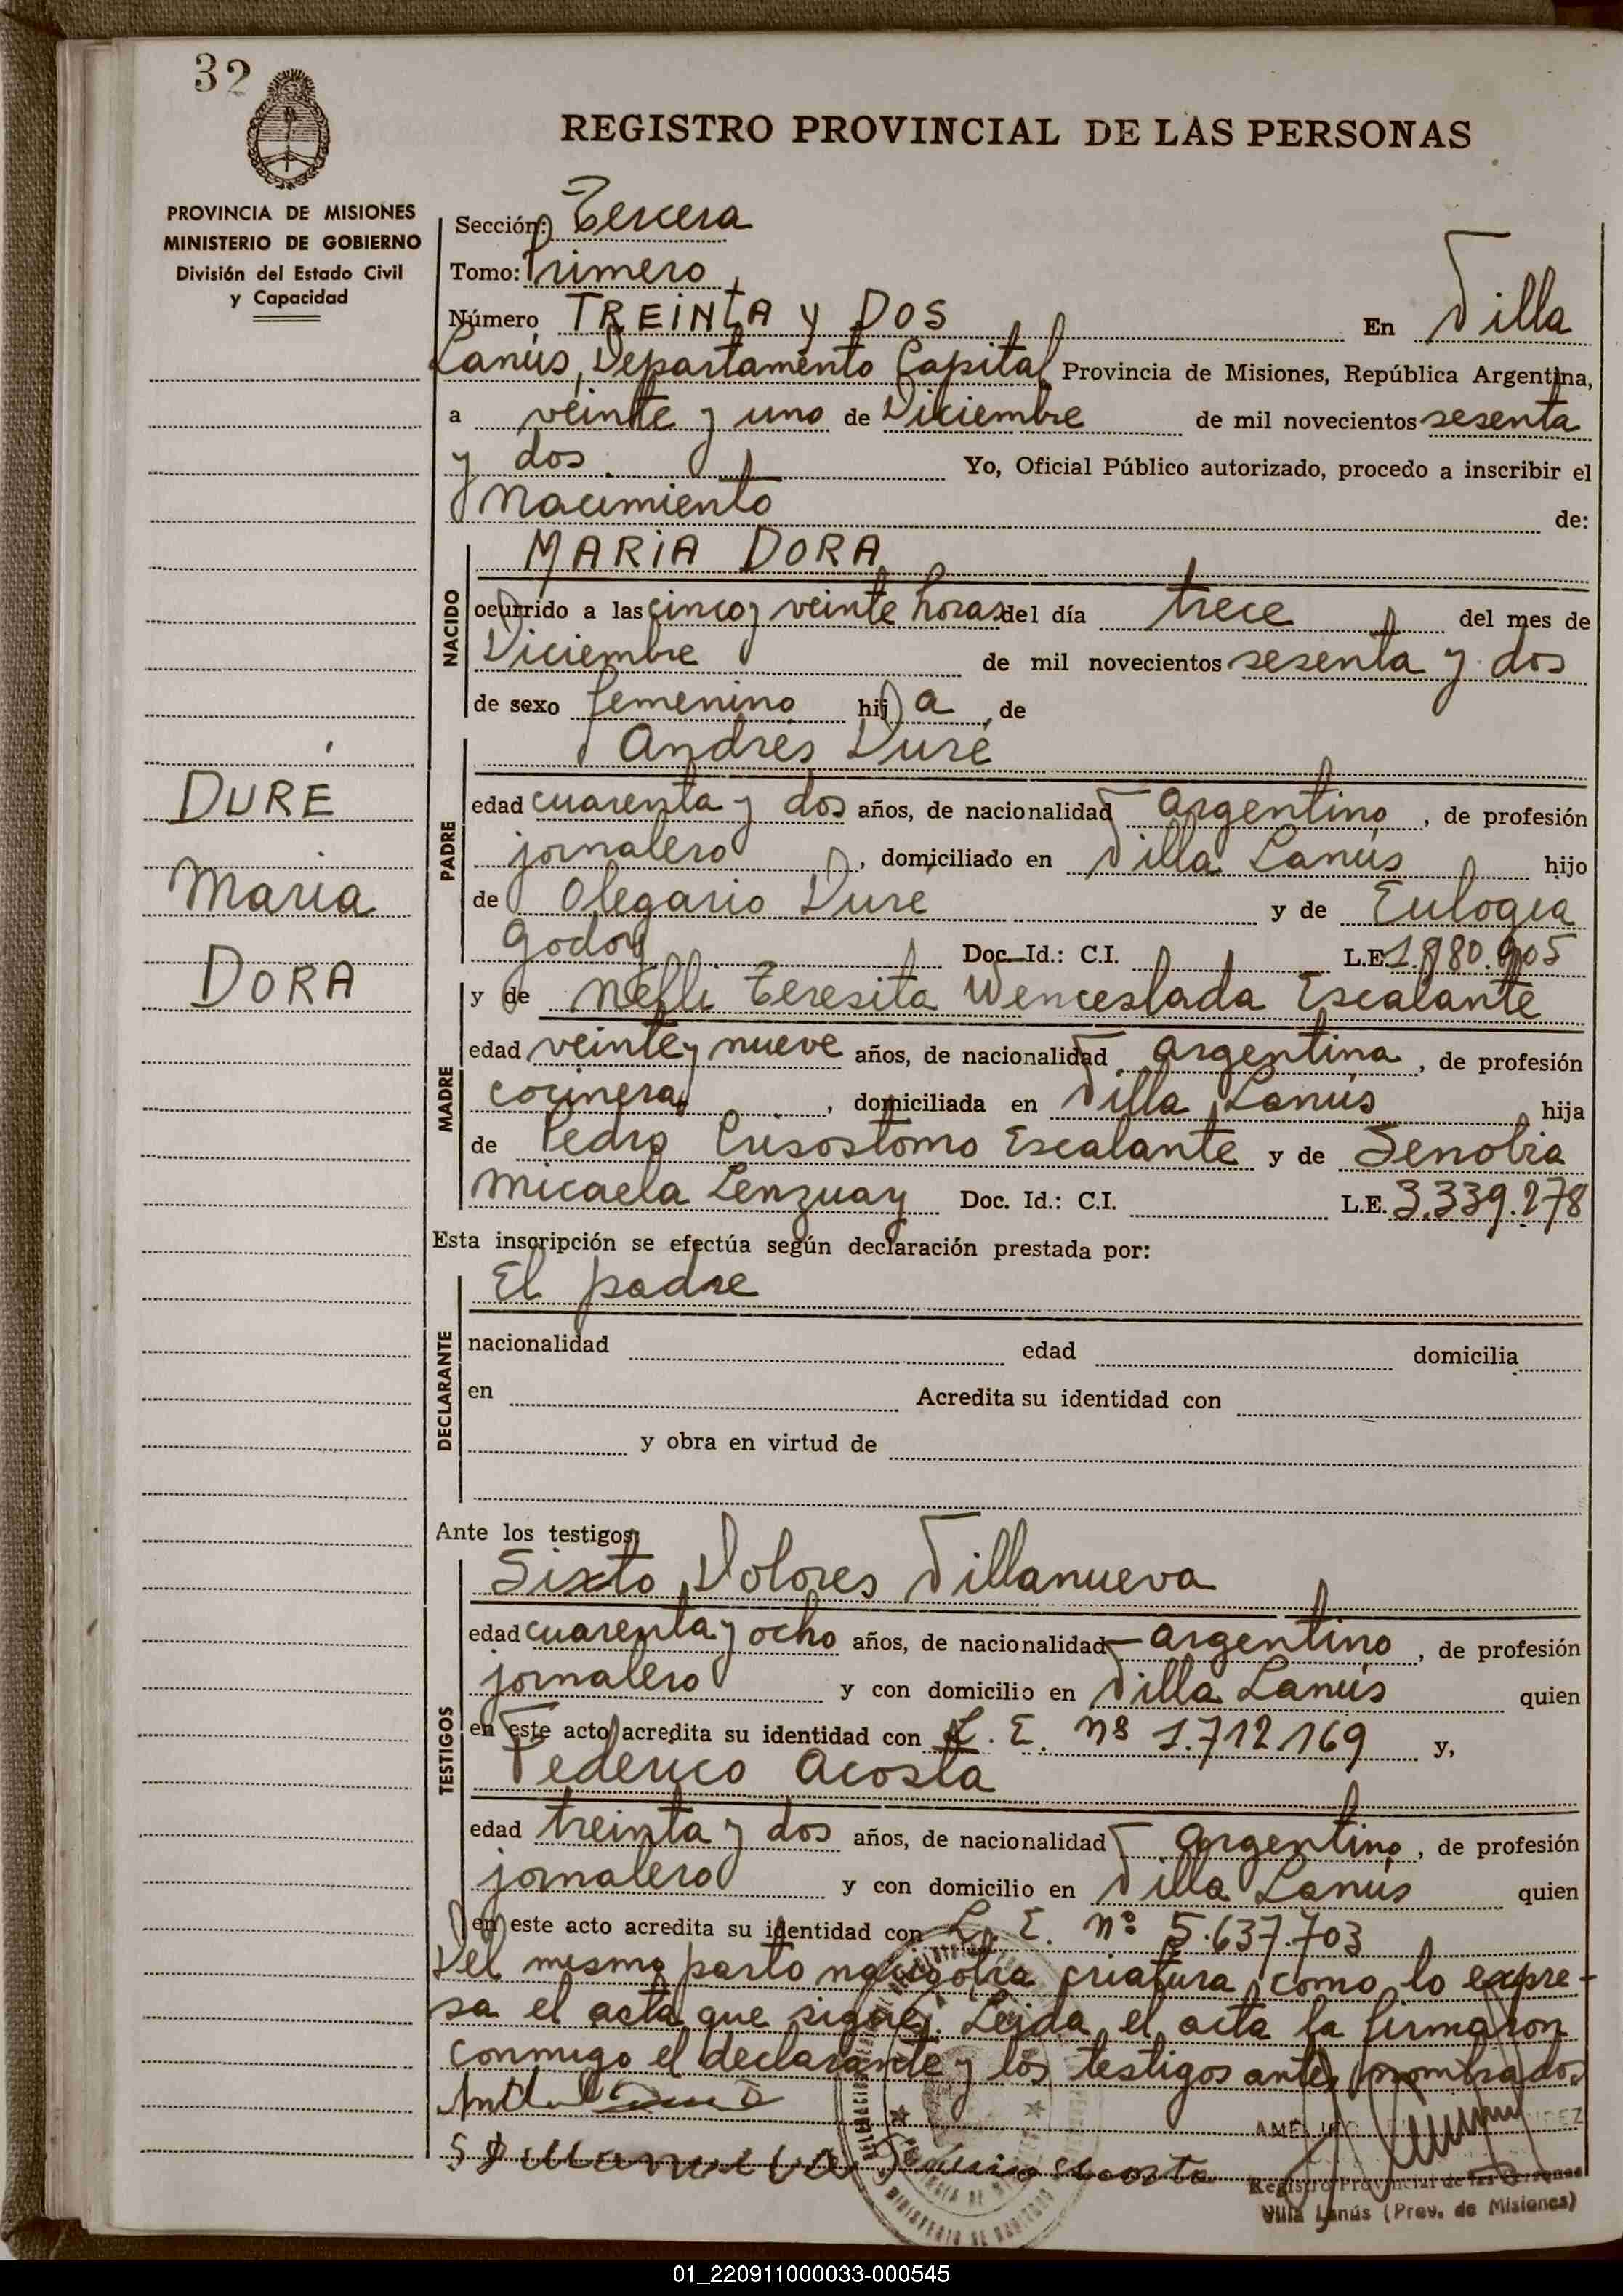 32
REGISTRO PROVINCIAL DE LAS PERSONAS
PROVINCIA DE MISIONES
MINISTERIO DE GOBIERNO
División del Estado Civil
y Capacidad
Sección: Tercera
Tomo: Primero
Número TREINTA Y DOS En Villa
Lanús, Departamento Capital Provincia de Misiones, República Argentina,
a veinte y uno de Diciembre de mil novecientos sesenta
y dos. Yo, Oficial Público autorizado, procedo a inscribir el
Nacimiento de:
MARIA DORA
NACIDO
ocurrido a las cinco y veinte horas del día trece del mes de
Diciembre de mil novecientos sesenta y dos
de sexo femenino hij a de
Andrés Duré
DURÉ
Maria
DORA
PADRE
edad cuarenta y dos años, de nacionalidad argentino, de profesión
jornalero, domiciliado en Villa Lanús hijo
de Olegario Duré y de Eulogia
Godoy Doc. Id.: C.I. L.E.
y de Nelli Teresita Wenceslada Escalante
MADRE
edad veinte y nueve años, de nacionalidad argentina, de profesión
cocinera, domiciliada en Villa Lanús hija
de Pedro Crisostomo Escalante y de Senobia
Micaela Lenzuay Doc. Id.: C.I. L.E. 3.339.278
Esta inscripción se efectúa según declaración prestada por:
El padre
DECLARANTE
nacionalidad edad domicilia
en Acredita su identidad con
y obra en virtud de
Ante los testigos:
Sixto Dolores Villanueva
TESTIGOS
edad cuarenta y ocho años, de nacionalidad argentino, de profesión
jornalero y con domicilio en Villa Lanús quien
en este acto acredita su identidad con L. E. nº 1.712.169 y,
Federico Acosta
edad treinta y dos años, de nacionalidad argentino, de profesión
jornalero y con domicilio en Villa Lanús quien
en este acto acredita su identidad con L. E. nº 5.637.703
Del mismo parto nació otra criatura, como lo expre-
sa el acta que sigue. Leida el acta la firmaron
conmigo el declarante y los testigos antes nombrados
S D Villanueva Federico Acosta
Registro Provincial de las Personas
Villa Lanús (Prov. de Misiones)
01_220911000033-000545